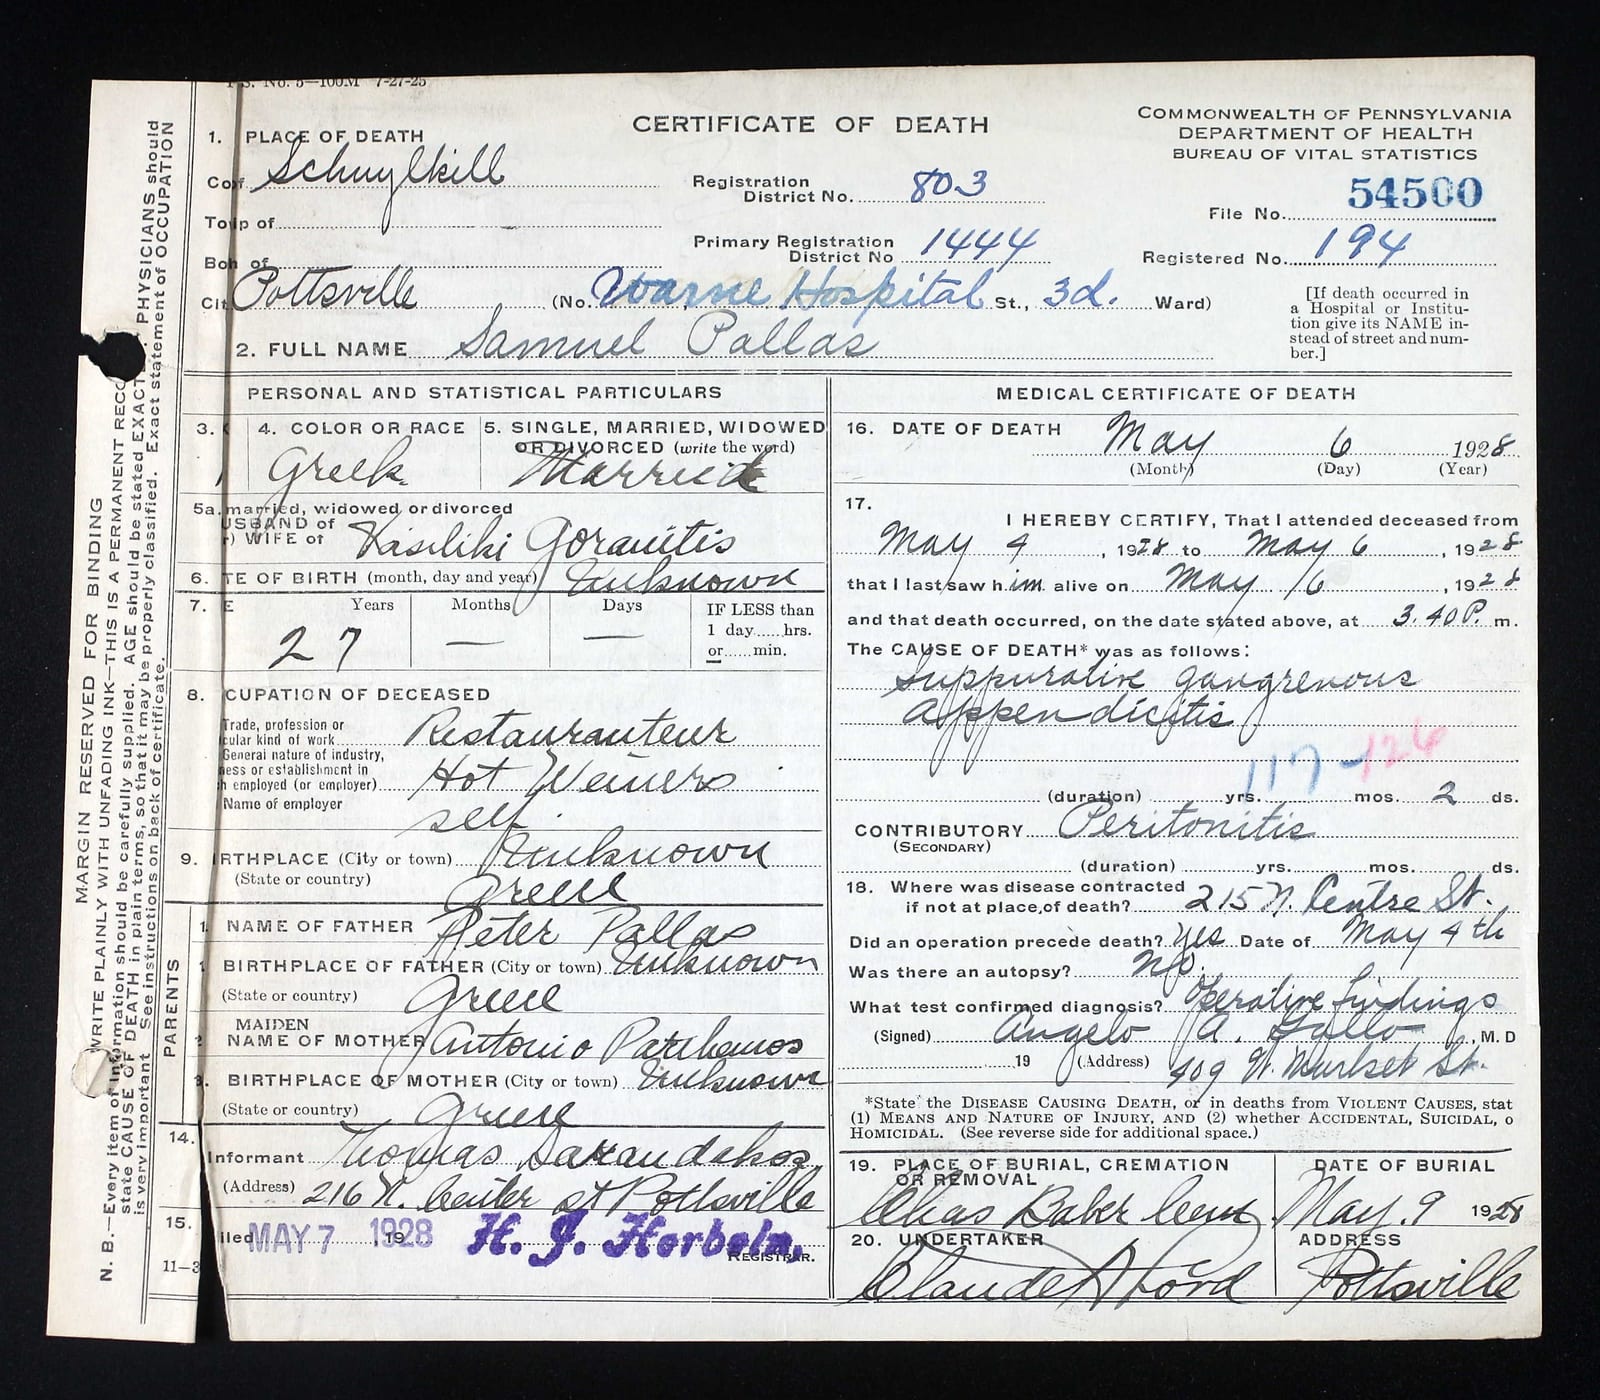 P.S. No. 5—100M 7-27-25
CERTIFICATE OF DEATH
COMMONWEALTH OF PENNSYLVANIA
DEPARTMENT OF HEALTH
BUREAU OF VITAL STATISTICS
1. PLACE OF DEATH
Co of Schuylkill
Registration District No. 803
File No. 54500
Top of
Primary Registration District No 1444
Registered No. 194
Boh of
Cit Pottsville (No. Warne Hospital St., 3d. Ward)
[If death occurred in a Hospital or Institution give its NAME instead of street and number.]
2. FULL NAME Samuel Pallas
PERSONAL AND STATISTICAL PARTICULARS
3.
4. COLOR OR RACE Greek
5. SINGLE, MARRIED, WIDOWED OR DIVORCED (write the word) Married
5a. married, widowed or divorced
USBAND of
r) WIFE of Vasiliki Goranitis
6. TE OF BIRTH (month, day and year) Unknown
7. E 27 Years — Months — Days IF LESS than 1 day.....hrs. or.....min.
8. CUPATION OF DECEASED
Trade, profession or
cular kind of work Restauranteur
General nature of industry,
ness or establishment in
h employed (or employer) Hot Weiners
Name of employer self
9. IRTHPLACE (City or town) Unknown
(State or country) Greece
PARENTS
1 NAME OF FATHER Peter Pallas
1 BIRTHPLACE OF FATHER (City or town) Unknown
(State or country) Greece
MAIDEN
NAME OF MOTHER Antonio
BIRTHPLACE OF MOTHER (City or town) Unknown
(State or country) Greece
14.
Informant Thomas Sarandakos
(Address) 216 N. Center st Pottsville
15.
iled MAY 7 1928 19 H. J. Herbein, REGISTRAR.
11-3
MEDICAL CERTIFICATE OF DEATH
16. DATE OF DEATH May 6 1928
(Month) (Day) (Year)
17.
I HEREBY CERTIFY, That I attended deceased from
May 4, 1928 to May 6, 1928
that I last saw him alive on May 6, 1928
and that death occurred, on the date stated above, at 3.40 P. m.
The CAUSE OF DEATH* was as follows:
Suppurative gangrenous
appendicitis
117 - 126
(duration) yrs. mos. 2 ds.
CONTRIBUTORY Peritonitis
(SECONDARY)
(duration) yrs. mos. ds.
18. Where was disease contracted
if not at place of death? 215 N. Centre St.
Did an operation precede death? Yes Date of May 4th
Was there an autopsy? No.
What test confirmed diagnosis? Operative findings
(Signed) Angelo A. Gallo, M. D
19 (Address) 409 W. Market St.
*State the DISEASE CAUSING DEATH, or in deaths from VIOLENT CAUSES, stat
(1) MEANS AND NATURE OF INJURY, AND (2) whether ACCIDENTAL, SUICIDAL, o
HOMICIDAL. (See reverse side for additional space.)
19. PLACE OF BURIAL, CREMATION OR REMOVAL
Chas Baber Cem
DATE OF BURIAL
May. 9 1928
20. UNDERTAKER
Claude A Lord
ADDRESS
Pottsville
MARGIN RESERVED FOR BINDING
WRITE PLAINLY WITH UNFADING INK—THIS IS A PERMANENT RECO
N. B.—Every item of information should be carefully supplied. AGE should be stated EXACT PHYSICIANS should
state CAUSE OF DEATH in plain terms, so that it may be properly classified. Exact statement of OCCUPATION
is very important. See instructions on back of certificate.